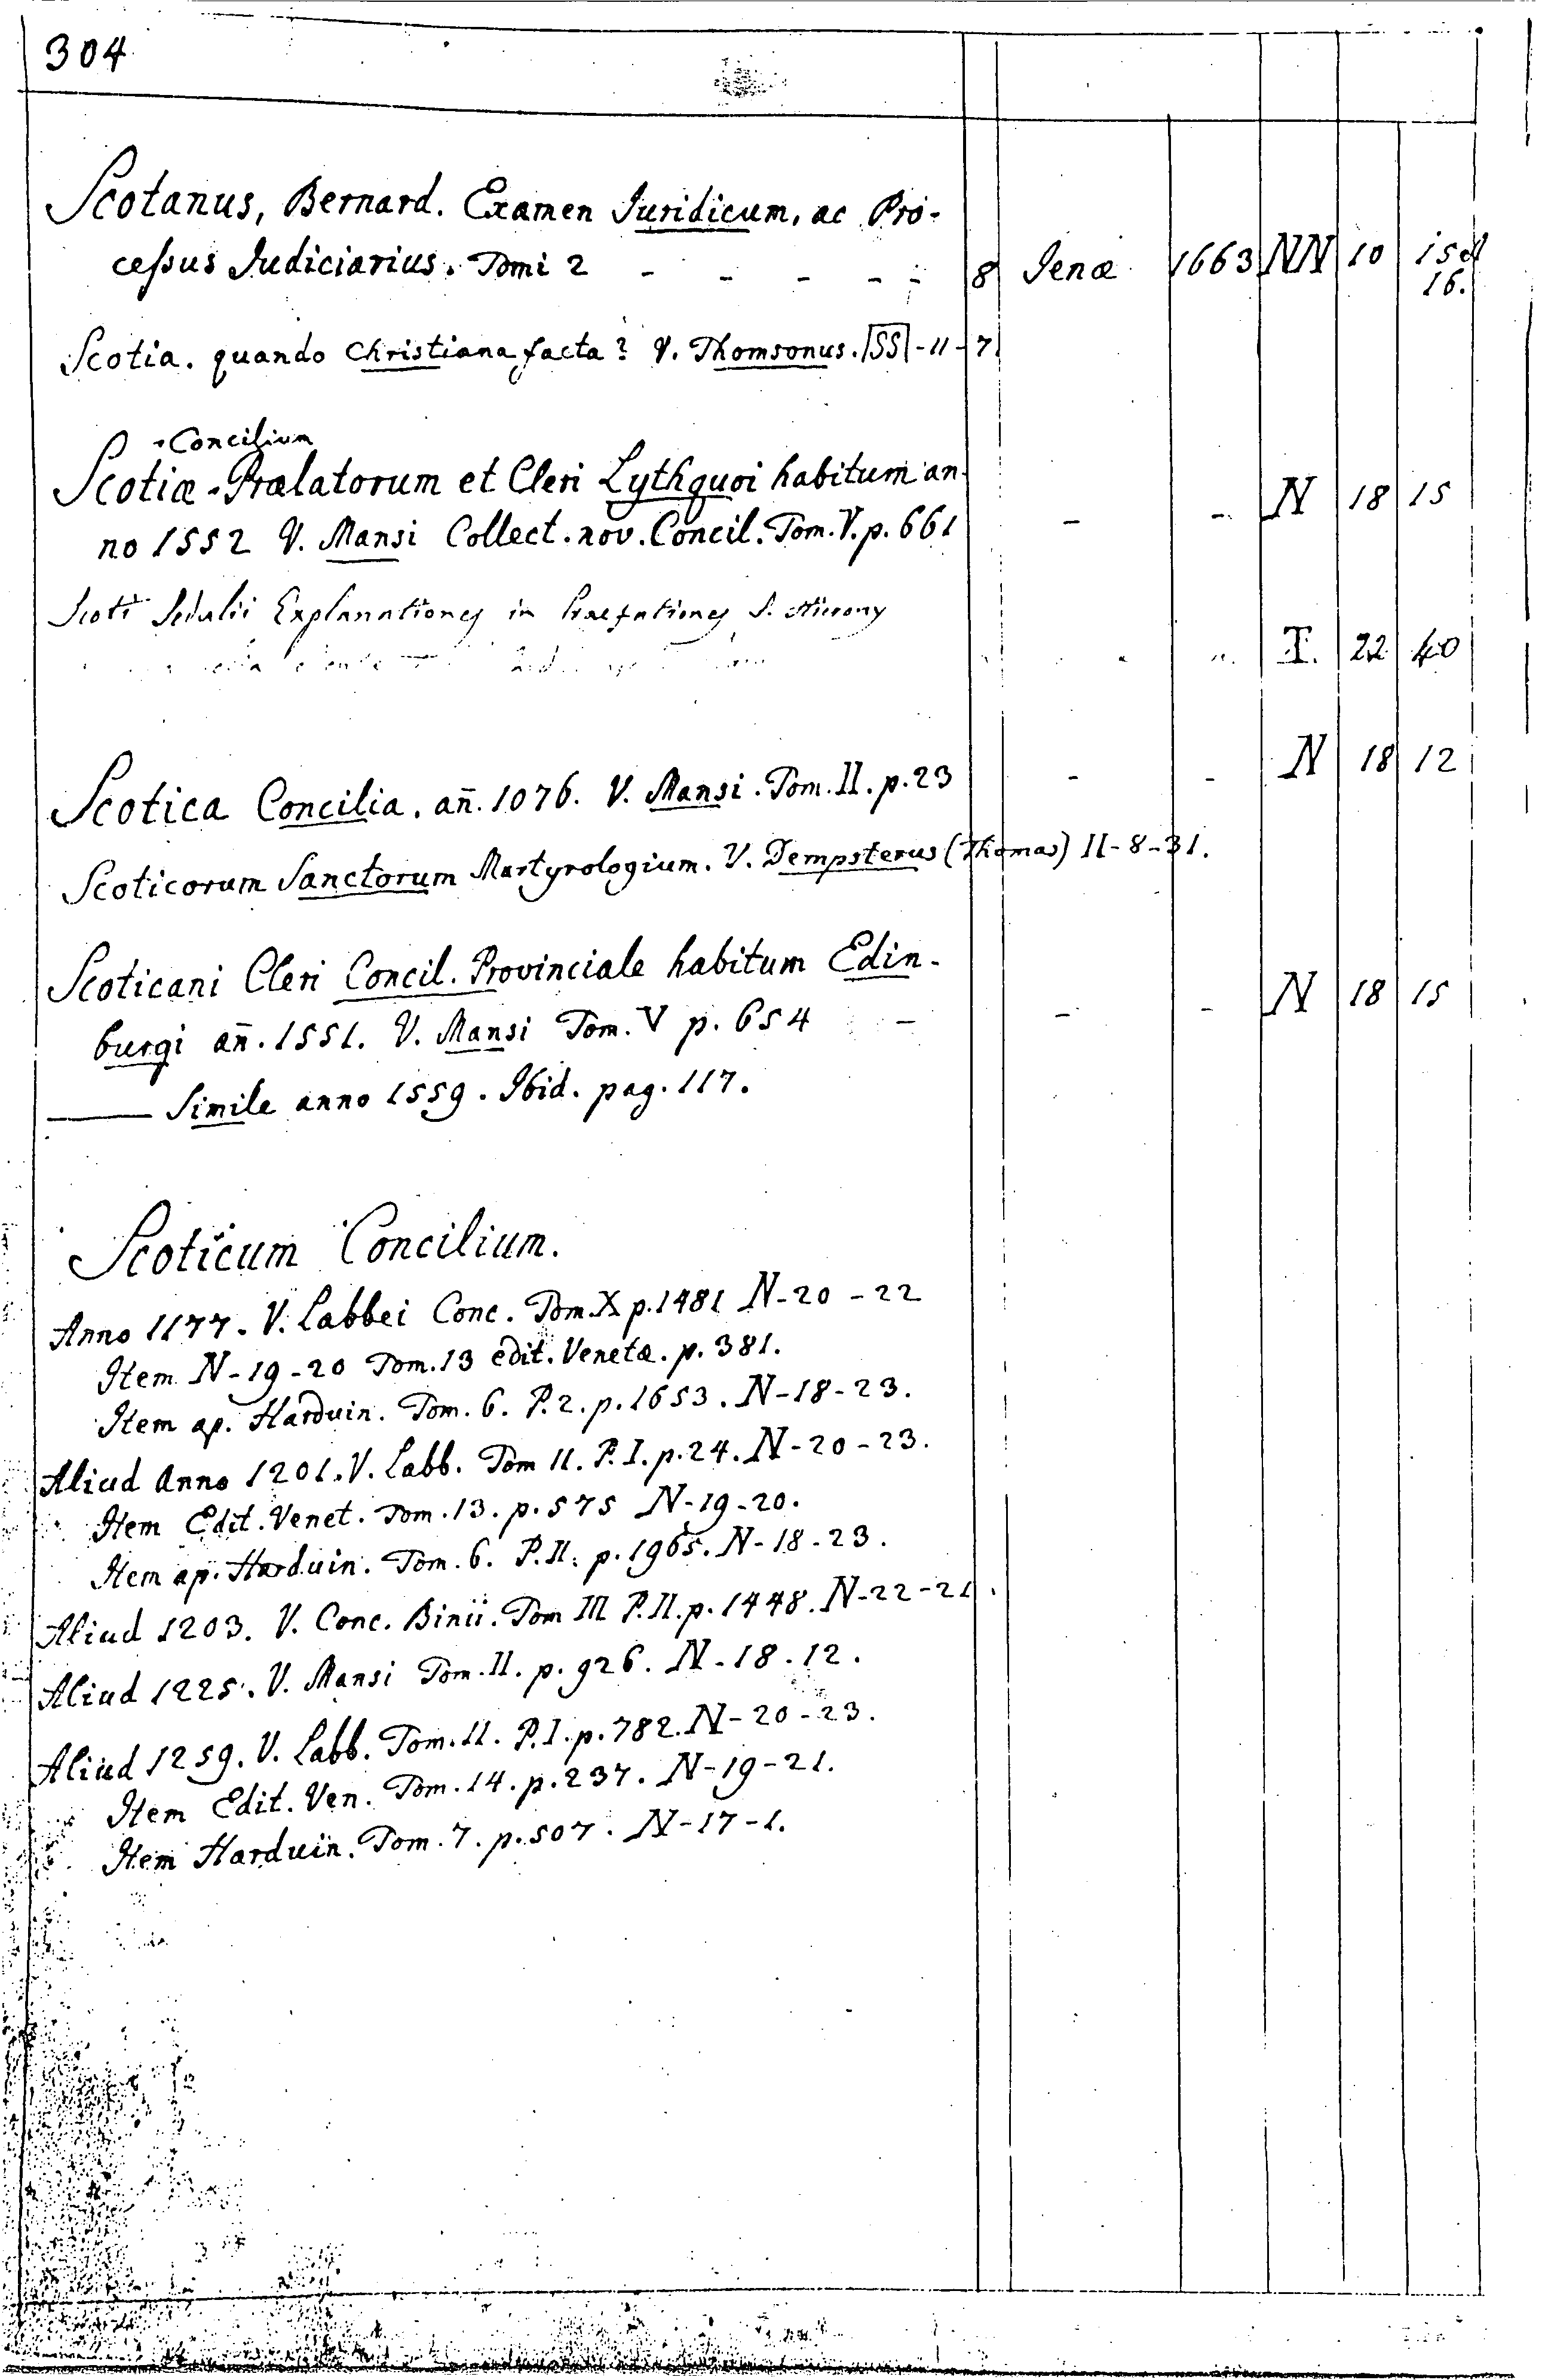 304
Scotanus, Bernard. Examen Juridicum, ac Pro-
cessus Judiciarius. Tomi 2 - - - - - 8 Jenæ 1663 NN 10 15 et
16.
Scotia. quando Christiana facta? V. Thomsonus. SS - 11 - 7.
Concilium
Scotiæ Prælatorum et Cleri Lythquoi habitum an-
no 1552 V. Mansi Collect. nov. Concil. Tom. V. p. 661 - - N 18 15
Scoti Sedulii Explanationes in Praefationes S. Hierony
T. 22 40
Scotica Concilia. añ. 1076. V. Mansi. Tom. II. p. 23 - - N 18 12
Scoticorum Sanctorum Martyrologium. V. Dempsterus (Thomas) II-8-31.
Scoticani Cleri Concil. Provinciale habitum Edin-
burgi añ. 1551. V. Mansi Tom. V p. 654 - - - N 18 15
—— Simile anno 1559. Ibid. pag. 117.
Scoticum Concilium.
Anno 1177. V. Labbei Conc. Tom. X p. 1481 N-20-22
Item N-19-20 Tom. 13 edit. Venetæ. p. 381.
Item ap. Harduin. Tom. 6. P. 2. p. 1653. N-18-23.
Aliud Anno 1201. V. Labb. Tom 11. P. I. p. 24. N-20-23.
Item Edit. Venet. Tom. 13. p. 575 N-19-20.
Item ap. Harduin. Tom. 6. P. II. p. 1965. N-18-23.
Aliud 1203. V. Conc. Binii. Tom III P. II. p. 1448. N-22-21.
Aliud 1225. V. Mansi Tom. II. p. 926. N-18-12.
Aliud 1259. V. Labb. Tom. 11. P. I. p. 782. N-20-23.
Item Edit. Ven. Tom. 14. p. 237. N-19-21.
Item Harduin. Tom. 7. p. 507. N-17-1.